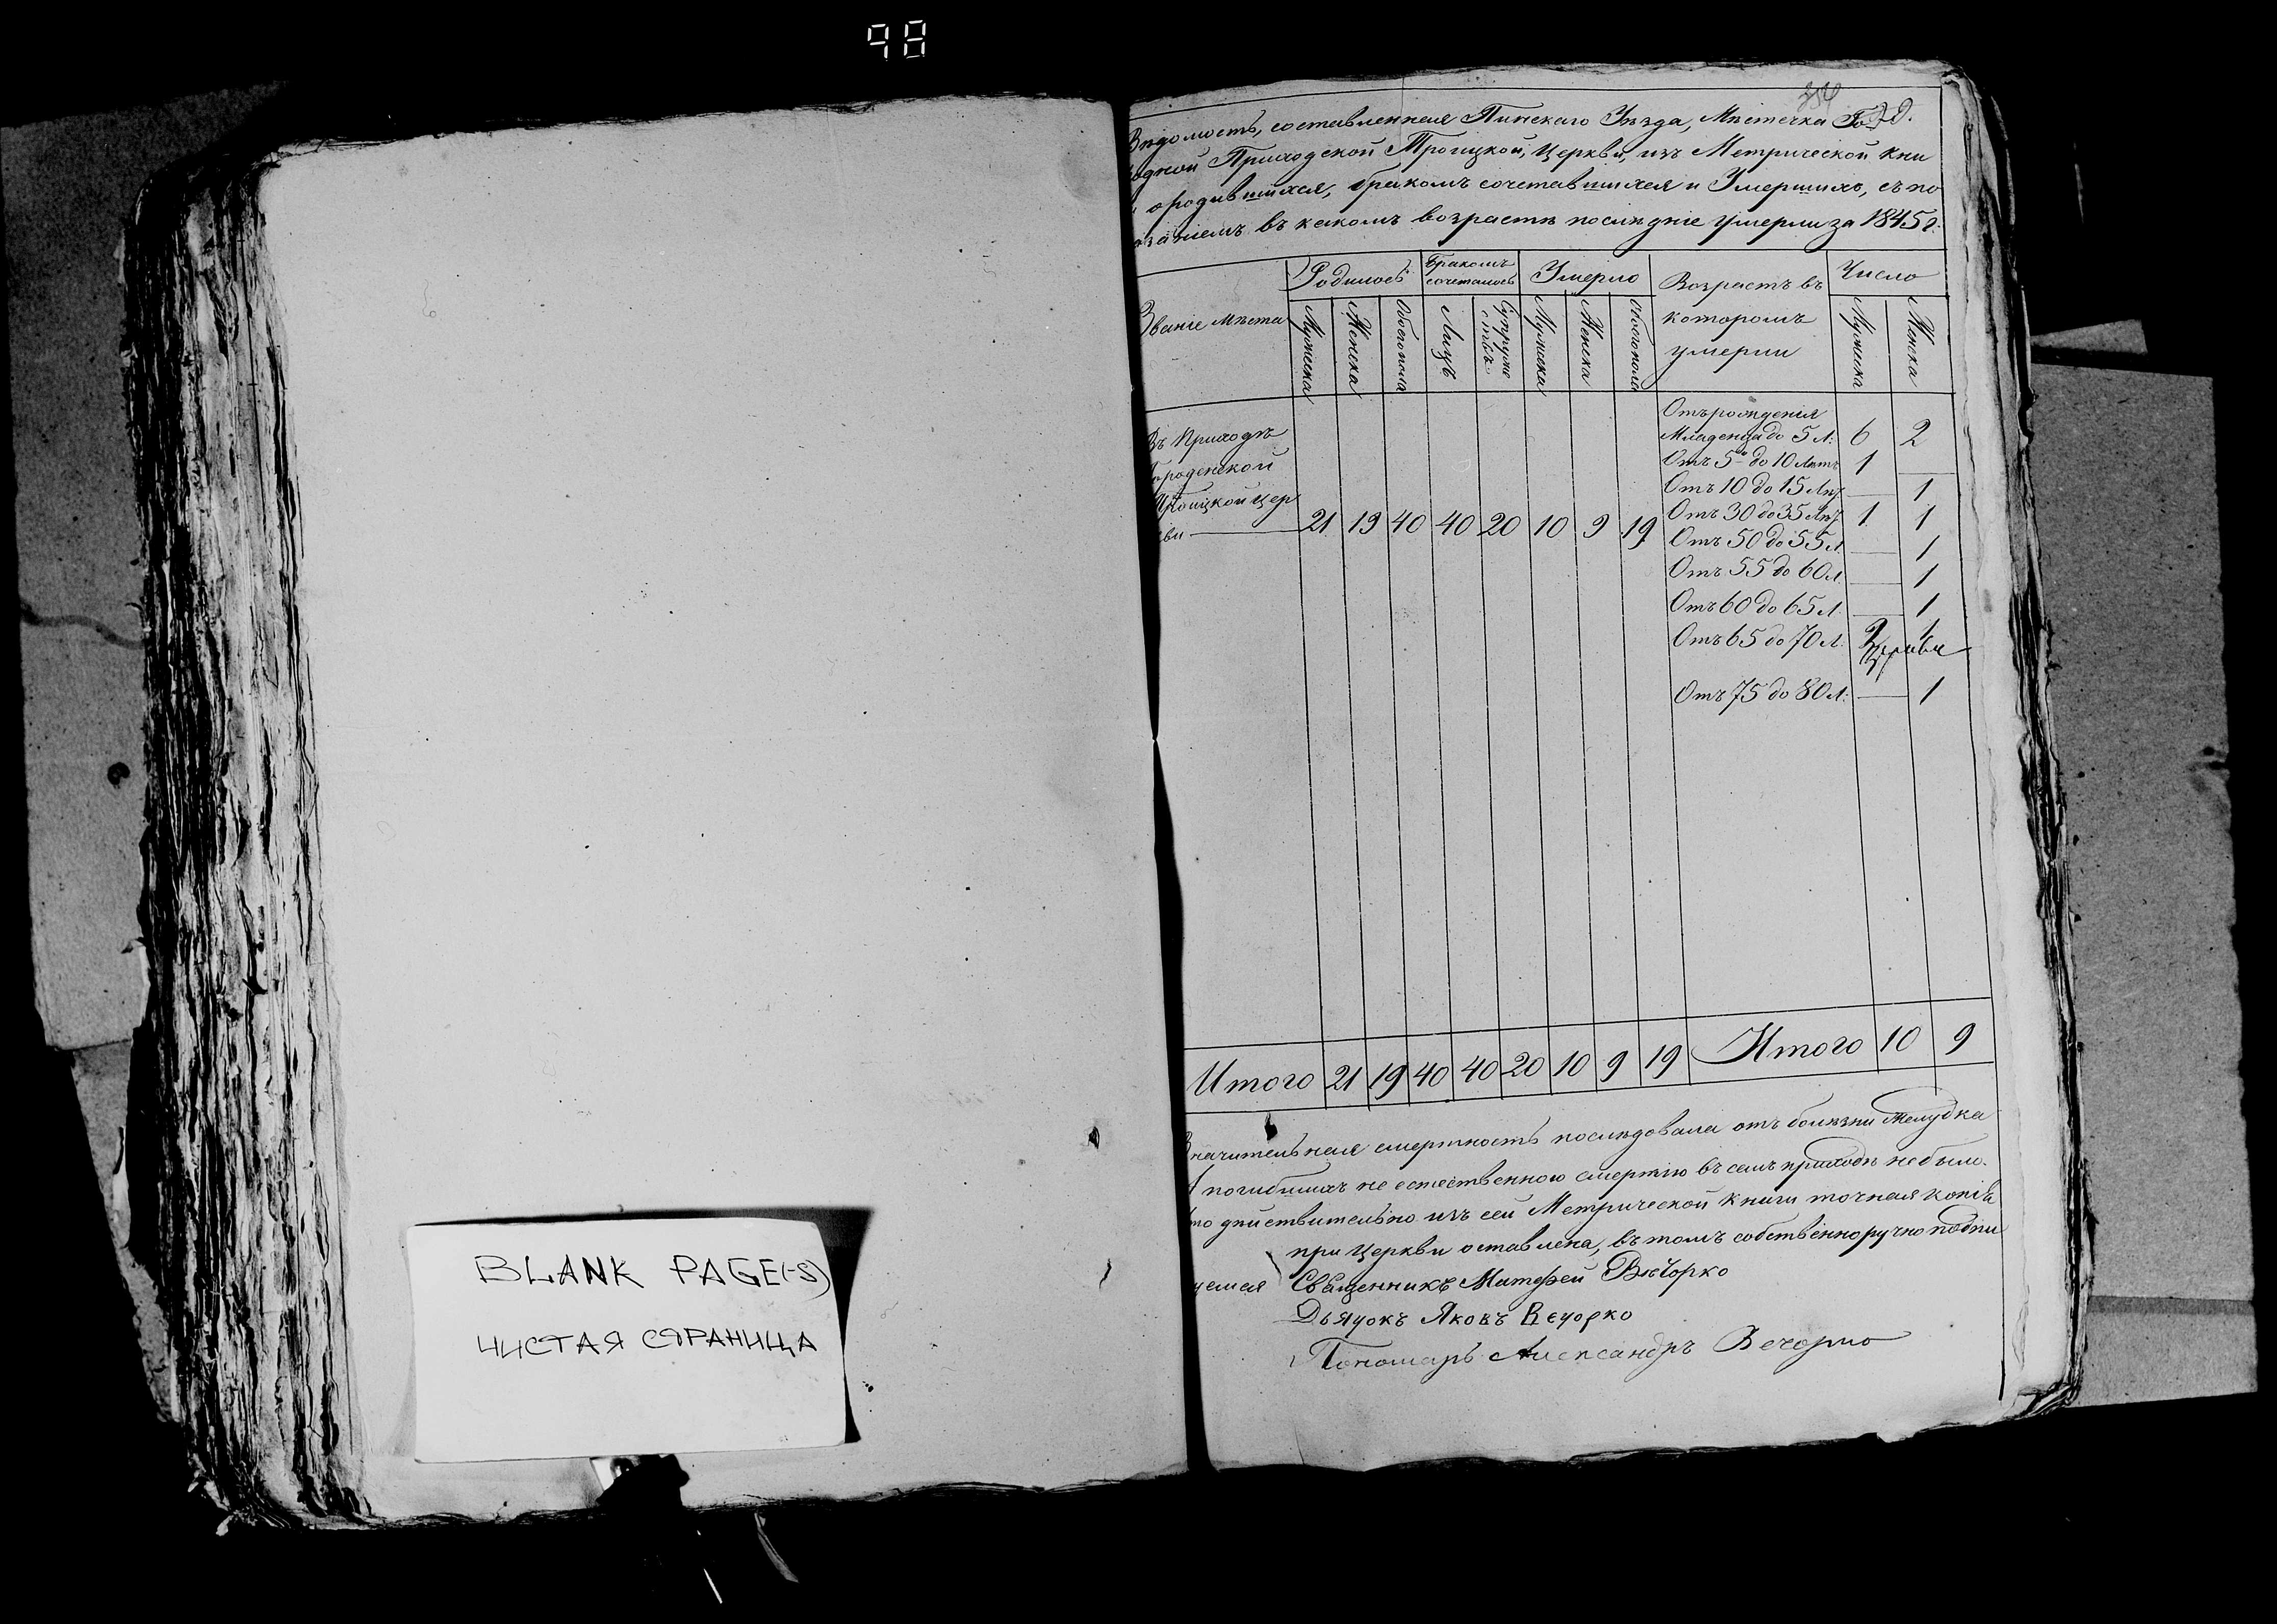 98
BLANK PAGE(-S)
ЧИСТАЯ СТРАНИЦА
354
Вѣдомость, составленная Пинскаго Уѣзда, Мѣстечка
родной Приходской Троицкой, Церкви, изъ Метрической Кни
ородившихся, бракомъ сочетавшихся и Умершихъ, съ по
заніемъ въ какомъ возрастѣ послѣдніе умерли за 1845 г.
Званіе мѣста
Родилось
Бракомъ сочеталось
Умерло
Возрастъ въ
которомъ
умерли
Число
Мужеска
Женска
Обоегопола
Лицъ
Супруже
ствъ
Мужеска
Женска
Обоегопола
Мужеска
Женска
Въ Приходѣ
Городенской
Троицкой Цер
кви 21 19 40 40 20 10 9 19
Отъ рожденія
Младенца до 5 л: 6 2
Отъ 5 до 10 Лѣтъ 1
Отъ 10 до 15 Лѣт 1
Отъ 30 до 35 Лѣт 1 1
Отъ 50 до 55 л 1
Отъ 55 до 60 л. 1
Отъ 60 до 65 л 1
Отъ 65 до 70 л. 2 1
Отъ 75 до 80 л: 1
Итого 21 19 40 40 20 10 9 19 Итого 10 9
Значительная смертность послѣдовала отъ болѣзни желудка
А погибшихъ не естественною смертію въ семъ приходѣ небыло.
что дѣйствительно изъ сей Метрической Книги точная копія
при Церкви оставлена, въ томъ собственноручно подпи
уемся Священникъ Матфей Вечорко
Дьячокъ Яковъ Вечорко
Пономарь Александръ Вечорко